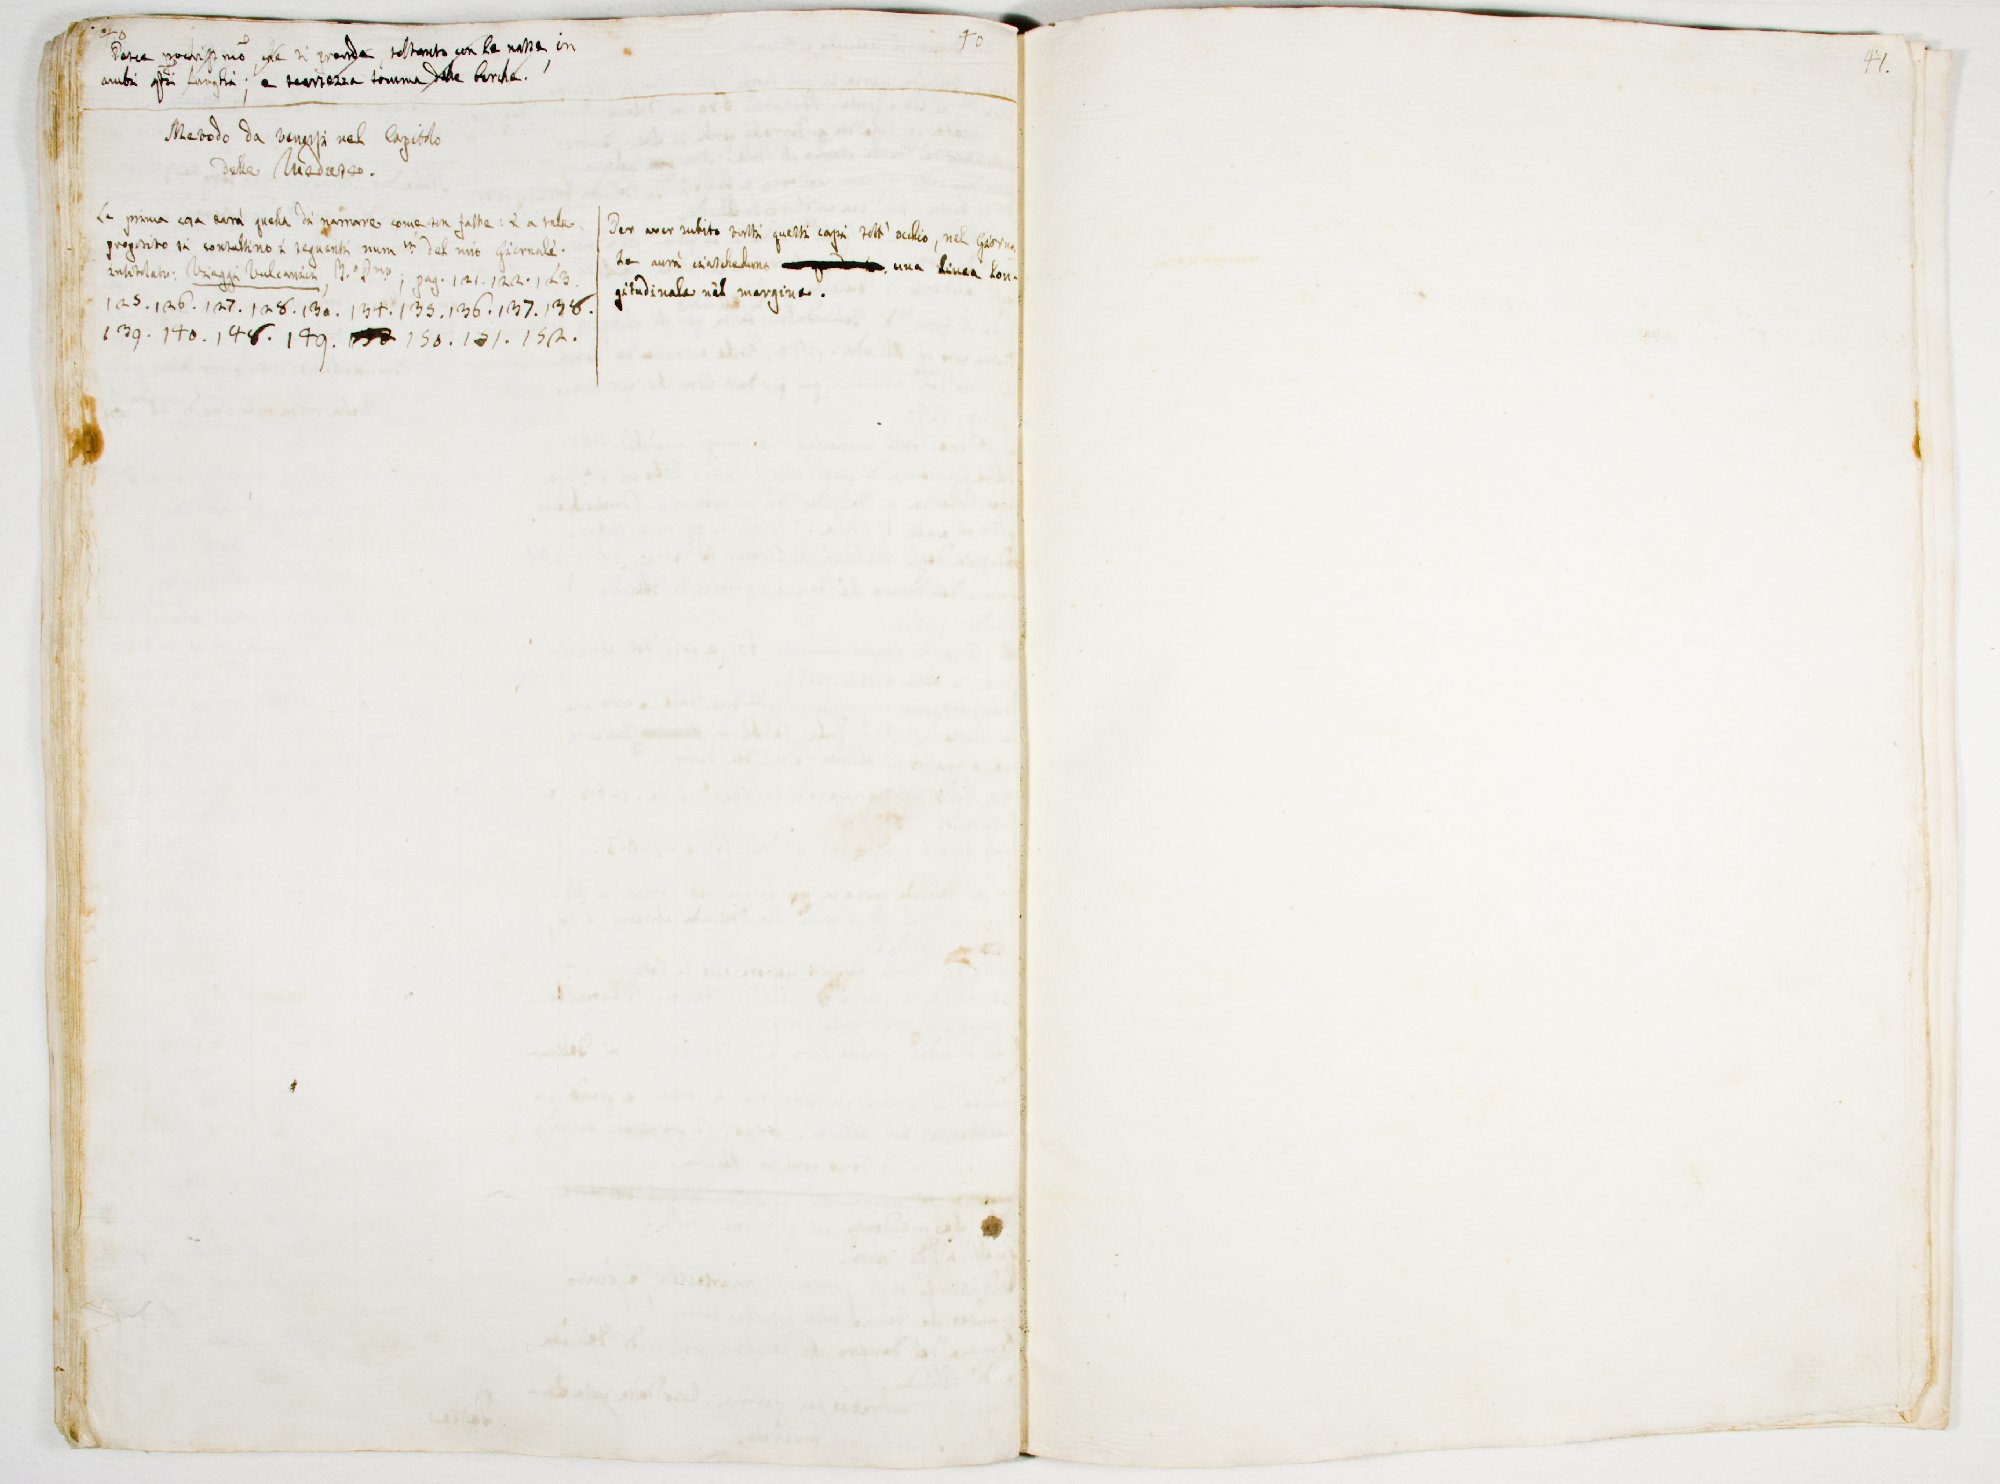 40
40
Pesce pochissimo, che si prende soltanto con le nasse, in
ambi luoghi; e scarsezza somma delle barche.
Metodo da tenersi nel Capitolo
delle Meduse.
La prima cosa sarà quella di narrare come un fatto: & a tale
proposito si consultino i seguenti num.ri del mio Giornale.
intitolato: Viaggi Vulcanici, ; pag. 121. 122. 123.
125. 126. 127. 128. 130. 134. 135. 136. 137. 138.
139. 140. 148. 149. 150. 151. 152.
Per aver subito tutti questi capi sott' occhio, nel Giorna-
le avrà ciascheduno una linea lon-
gitudinale nel margine.
41.